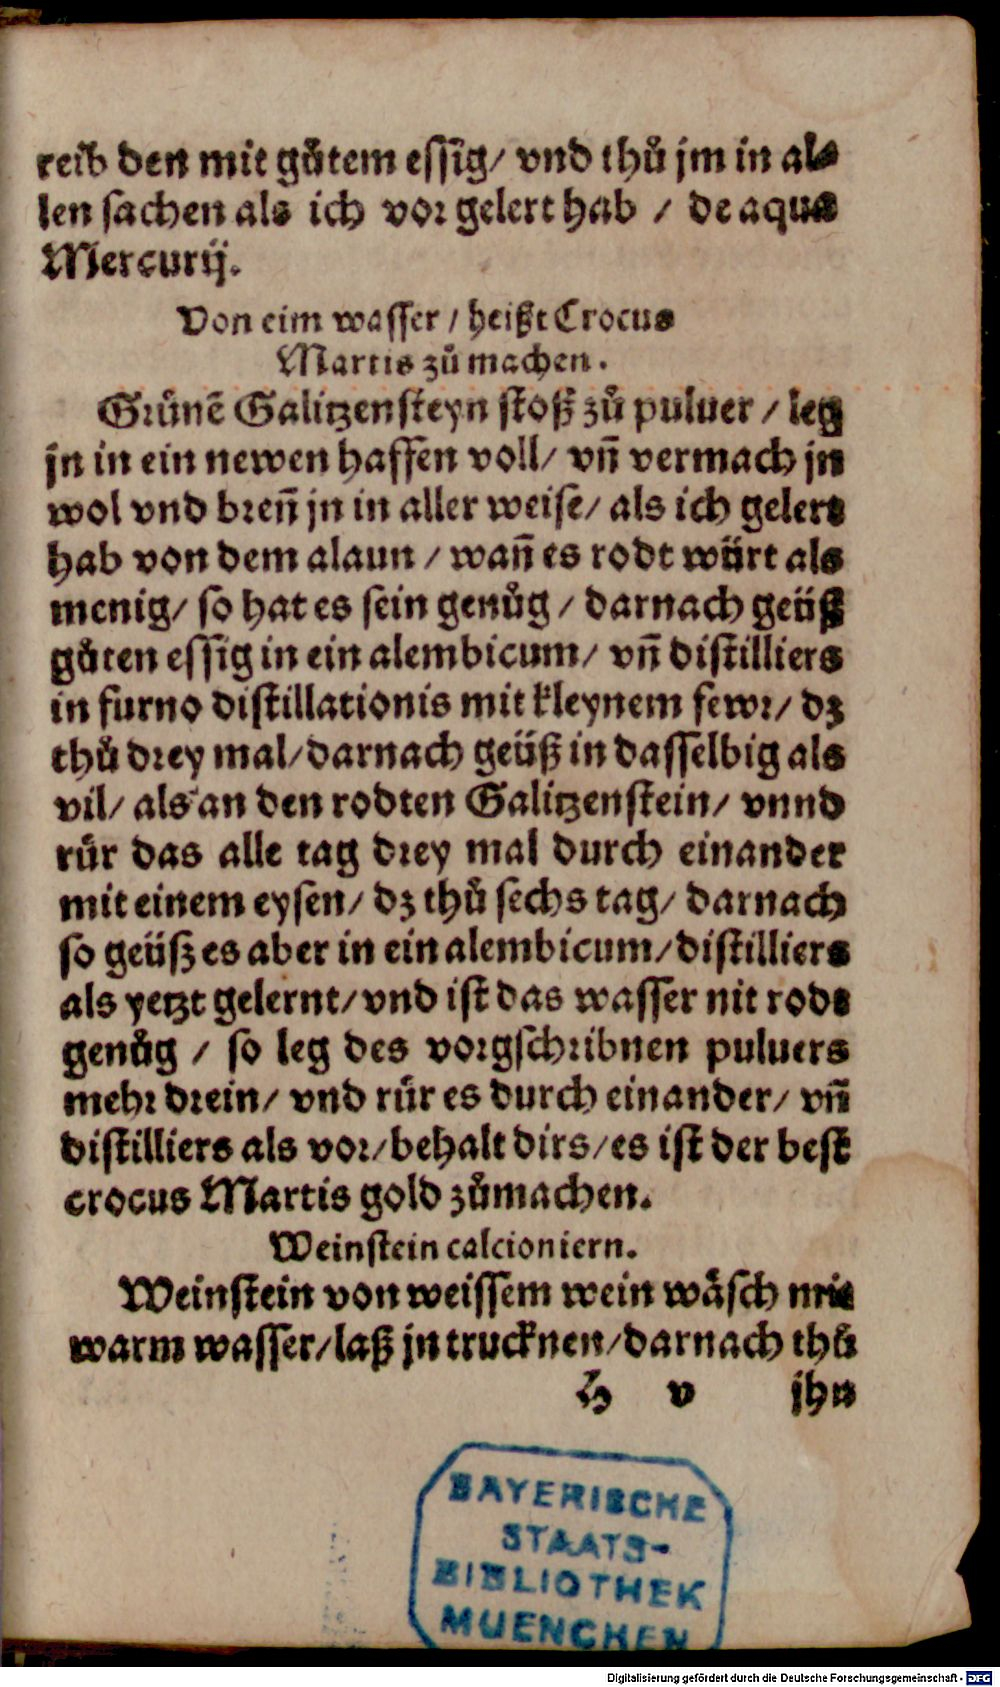 reib den mit gůtem essig/ vnd thů jm in al⸗
len sachen als ich vor gelert hab / de aqua
Mercurij.
Von eim wasser / heißt Crocus
Martis zů machen.
Grůnẽ Galitzensteyn stoß zů puluer / leg
jn in ein newen haffen voll/ vñ vermach jn
wol vnd breñ jn in aller weise/ als ich gelert
hab von dem alaun / wañ es rodt würt als
menig/ so hat es sein genůg / darnach geüß
gůten essig in ein alembicum/ vñ distilliers
in furno distillationis mit kleynem fewr/ dz
thů drey mal/darnach geüß in dasselbig als
vil/ als an den rodten Galitzenstein/ vnnd
rür das alle tag drey mal durch einander
mit einem eysen/ dz thů sechs tag/ darnach
so geüß es aber in ein alembicum/distilliers
als yetzt gelernt/vnd ist das wasser nit rodt
genůg / so leg des vorgschribnen puluers
mehr drein/ vnd rür es durch einander/ vñ
distilliers als vor/behalt dirs/es ist der best
crocus Martis gold zůmachen.
Weinstein calcioniern.
Weinstein von weissem wein wäsch mit
warm wasser/laß jn trucknen/darnach thů
H v jhn
BAYERISCHE
STAATS-
BIBLIOTHEK
MUENCHEN
Digitalisierung gefördert durch die Deutsche Forschungsgemeinschaft - DFG